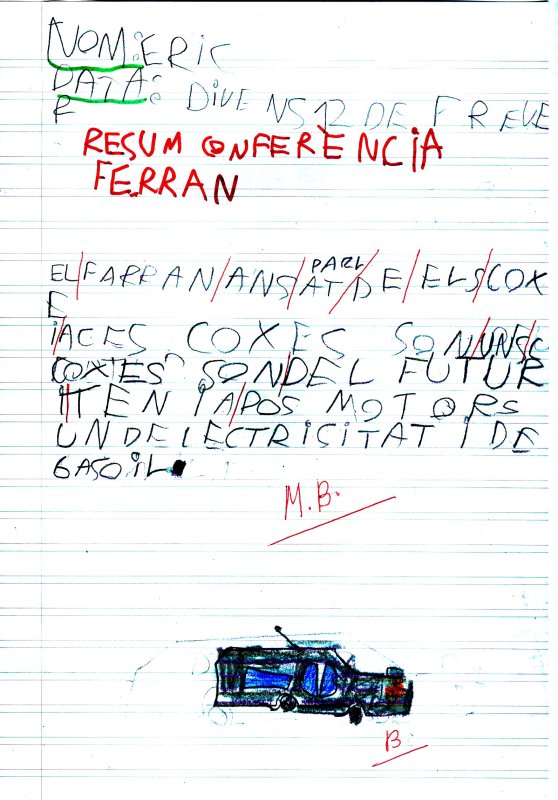 NOM: ERIC
DATA: DIVENS 12 DE FREVE
R
RESUM CONFERÈNCIA
FERRAN
EL/FARRAN/ANS/PARLAT/DE/ELS/COX
E
I/ACES COXES SON/UNS/C
COXES SON/DEL FUTUR
I/TEN IA/POS MOTORS
UN DELECTRICITAT I DE
GASOIL.
M.B.
B.